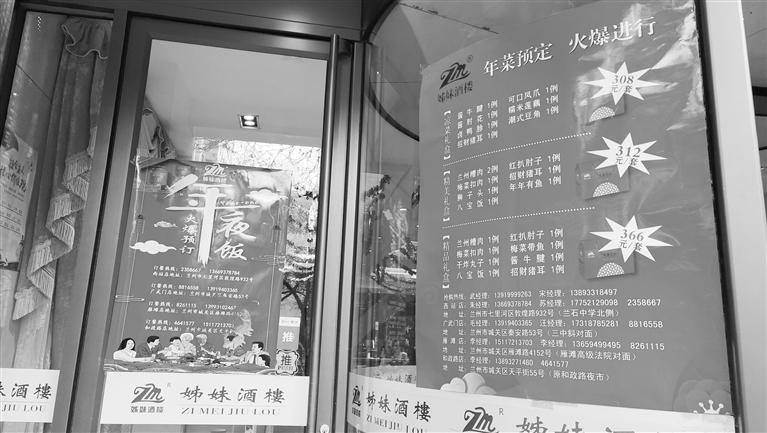 年夜饭
火爆预订
订餐热线：2358667 13669378784
订餐热线：8816558 13919403365
订餐热线：8261115
订餐热线：4641577 15117213703
推
推
姊妹酒樓
ZI MEI JIU LOU
姊妹酒楼
R
姊妹酒樓
ZI MEI JIU LOU
年菜预定 火爆进行
姊妹酒楼
308元/套
酱牛腱 1例 可口凤爪 1例
酱肘花 1例 糯米莲藕 1例
1例 潮式豆角 1例
招财猪耳 1例
312元/套
兰州糟肉 2例 红扒肘子 1例
梅菜扣肉 1例 招财猪耳 1例
狮子头 1例 年年有鱼 1例
八宝饭 1例
366元/套
【精品礼盒】
兰州糟肉 1例 红扒肘子 1例
梅菜扣肉 1例 梅菜带鱼 1例
干炸丸子 1例 酱牛腱 1例
八宝饭 1例 招财猪耳 1例
抢购热线：武经理：13919999263 宋经理：13893318497
西站店：朱经理：13669378784 苏经理：17752129098 2358667
地址：兰州市七里河区敦煌路932号（兰石中学北侧）
广武门店：毛经理：13919403365 汪经理：17318785281 8816558
地址：兰州市城关区泰安路53号（三中斜对面）
雁滩店：李经理：15117213703 李经理：13659499495 8261115
地址：兰州市城关区雁滩路4152号（雁滩高级法院对面）
和政路店：李经理：13893271480 4641577
地址：兰州市城关区天平街55号（原和政路夜市）
姊妹酒樓
ZI MEI JIU LOU
R
姊妹酒樓